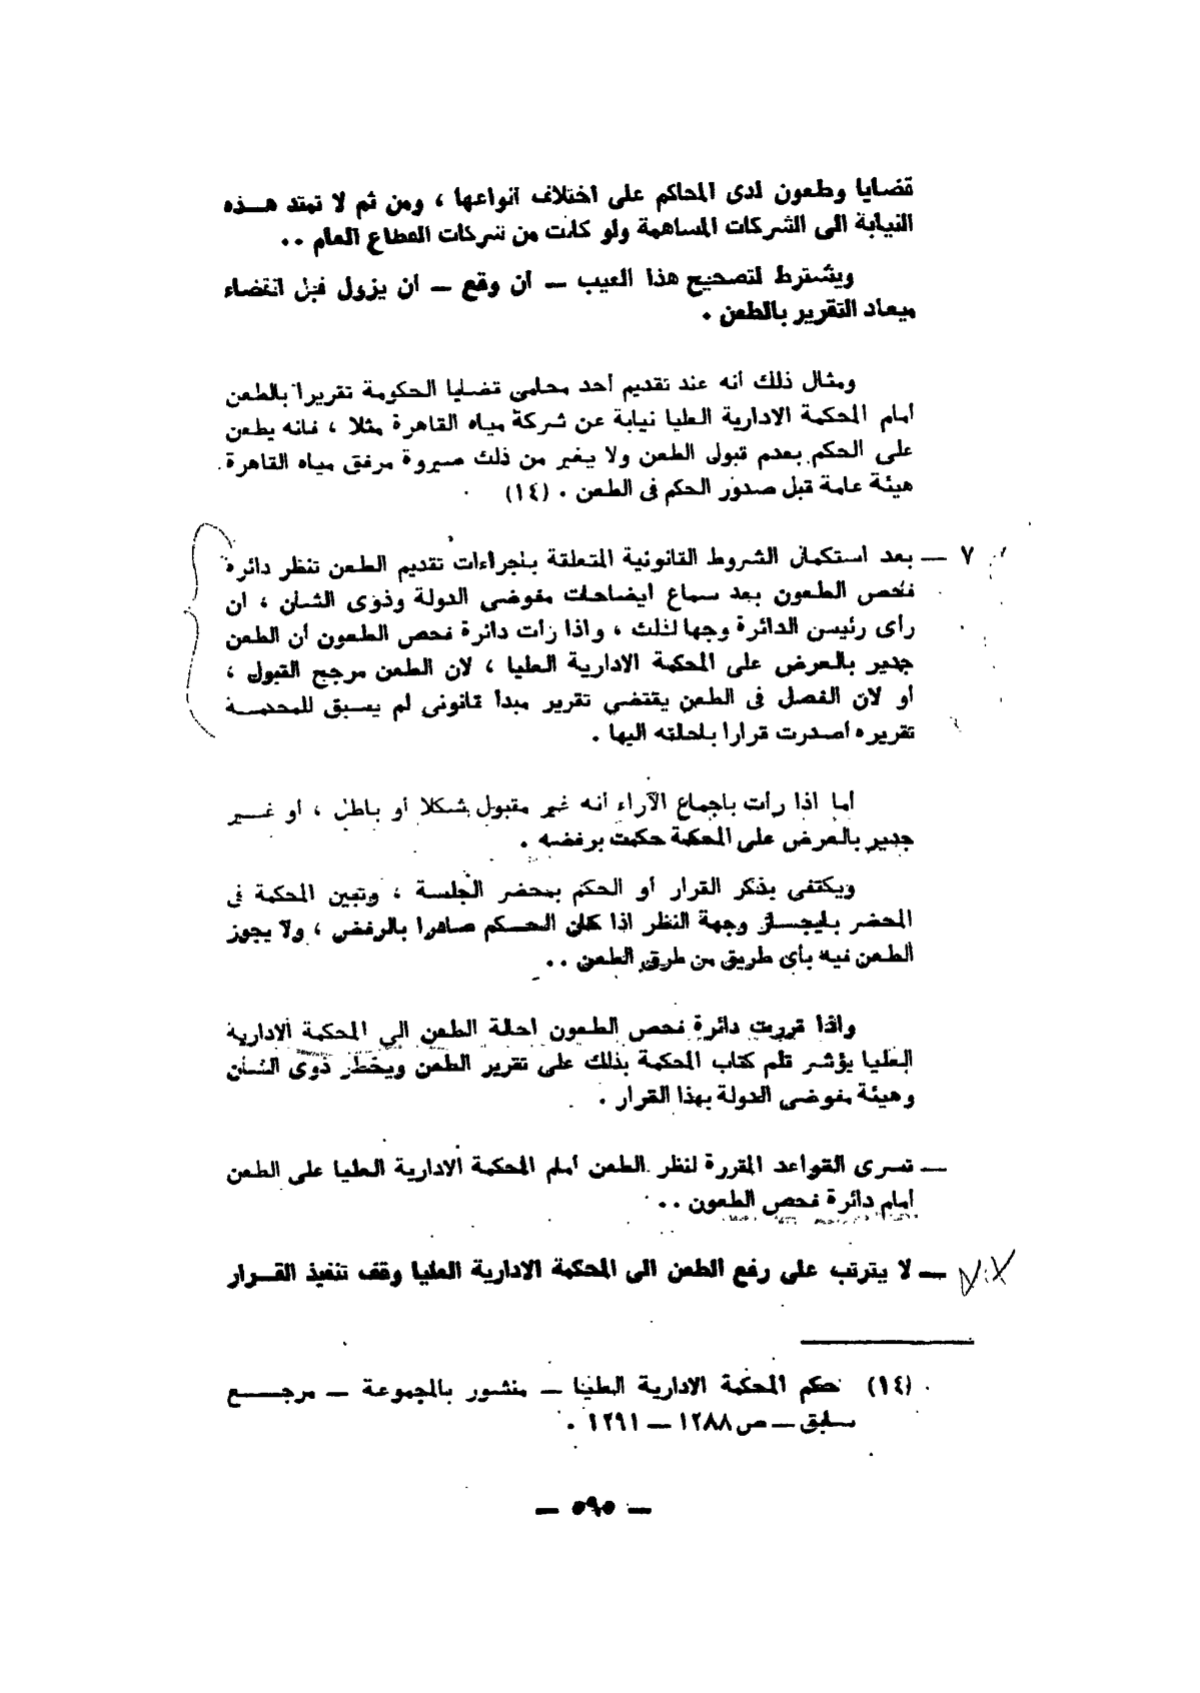 قضايا وطعون لدى المحاكم على اختلاف أنواعها ، ومن ثم لا تمتد هــذه
النيابة الى الشركات المساهمة ولو كانت من شركات القطاع العام ..
ويشترط لتصحيح هذا العيب — ان وقع — أن يزول قبل انقضاء
ميعاد التقرير بالطعن .
ومثال ذلك أنه عند تقديم أحد محامى قضايا الحكومة تقريرا بالطعن
أمام المحكمة الادارية العليا نيابة عن شركة مياه القاهرة مثلا ، فانه يطعن
على الحكم بعدم قبول الطعن ولا يغير من ذلك صيروة مرفق مياه القاهرة
هيئة عامة قبل صدور الحكم فى الطعن . (١٤)
٧ — بعد استكمال الشروط القانونية المتعلقة باجراءات تقديم الطعن تنظر دائرة
فحص الطعون بعد سماع ايضاحات مفوضى الدولة وذوى الشأن ، ان
رأى رئيس الدائرة وجها لذلك ، واذا رأت دائرة فحص الطعون أن الطعن
جدير بالعرض على المحكمة الادارية العليا ، لان الطعن مرجح القبول ،
أو لان الفصل فى الطعن يقتضى تقرير مبدأ قانونى لم يسبق للمحكمــة
تقريره أصدرت قرارا باحالته اليها .
أما اذا رأت باجماع الآراء أنه غير مقبول شكلا أو باطل ، أو غــير
جدير بالعرض على المحكمة حكمت برفضه .
ويكتفى بذكر القرار أو الحكم بمحضر الجلسة ، وتبين المحكمة فى
المحضر بايجــاز وجهة النظر اذا كان الحــكم صادرا بالرفض ، ولا يجوز
الطعن فيه بأى طريق من طرق الطعن ..
واذا قررت دائرة فحص الطعون احالة الطعن الى المحكمة الادارية
العليا يؤشر قلم كتاب المحكمة بذلك على تقرير الطعن ويخطر ذوى الشأن
وهيئة مفوضى الدولة بهذا القرار .
— تسرى القواعد المقررة لنظر الطعن أمام المحكمة الادارية العليا على الطعن
أمام دائرة فحص الطعون ..
— لا يترتب على رفع الطعن الى المحكمة الادارية العليا وقف تنفيذ القــرار
(١٤) حكم المحكمة الادارية العليا — منشور بالمجموعة — مرجــع
سابق — ص ١٢٨٨ — ١٢٩١ .
— ٥٩٥ —